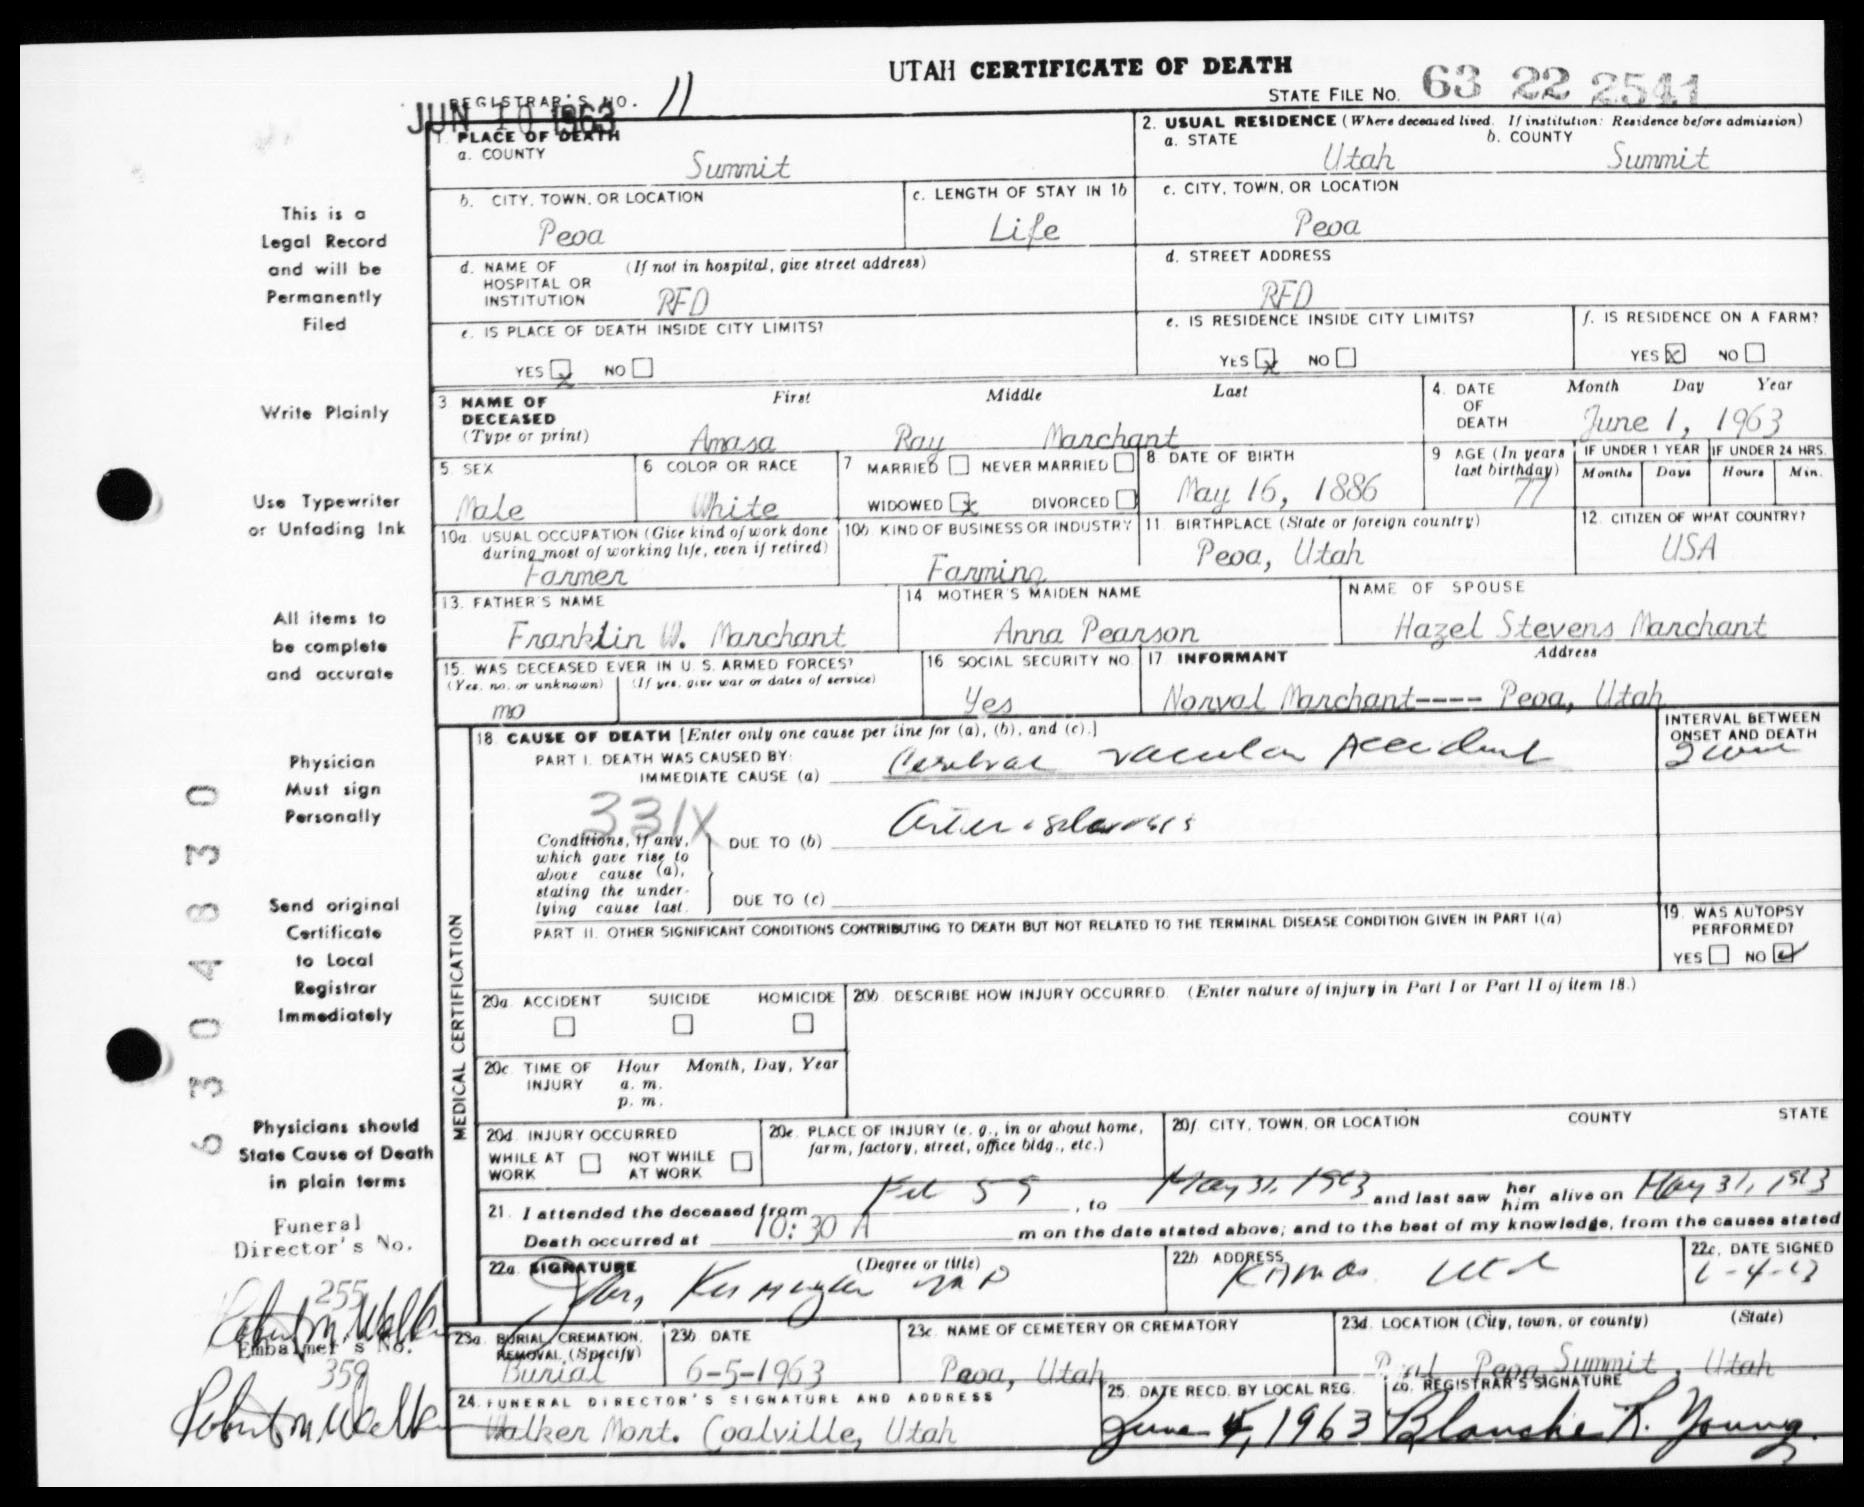 UTAH CERTIFICATE OF DEATH
REGISTRAR'S NO. 11
STATE FILE NO. 63 22 2541
JUN 10 1963
1. PLACE OF DEATH
a. COUNTY
Summit
2. USUAL RESIDENCE (Where deceased lived. If institution: Residence before admission)
a. STATE b. COUNTY
Utah Summit
b. CITY, TOWN, OR LOCATION
Peoa
c. LENGTH OF STAY IN 1b
Life
c. CITY, TOWN, OR LOCATION
Peoa
d. NAME OF HOSPITAL OR INSTITUTION (If not in hospital, give street address)
RFD
d. STREET ADDRESS
RFD
e. IS PLACE OF DEATH INSIDE CITY LIMITS?
YES x NO
e. IS RESIDENCE INSIDE CITY LIMITS?
YES x NO
f. IS RESIDENCE ON A FARM?
YES x NO
3 NAME OF DECEASED (Type or print)
First Middle Last
Amasa Ray Marchant
4. DATE OF DEATH
Month Day Year
June 1, 1963
5. SEX
Male
6 COLOR OR RACE
White
7 MARRIED NEVER MARRIED
WIDOWED x DIVORCED
8. DATE OF BIRTH
May 16, 1886
9 AGE (In years last birthday)
77
IF UNDER 1 YEAR IF UNDER 24 HRS.
Months Days Hours Min.
10a. USUAL OCCUPATION (Give kind of work done during most of working life, even if retired)
Farmer
10b. KIND OF BUSINESS OR INDUSTRY
Farming
11. BIRTHPLACE (State or foreign country)
Peoa, Utah
12. CITIZEN OF WHAT COUNTRY?
USA
13. FATHER'S NAME
Franklin W. Marchant
14 MOTHER'S MAIDEN NAME
Anna Pearson
NAME OF SPOUSE
Hazel Stevens Marchant
15. WAS DECEASED EVER IN U. S. ARMED FORCES?
(Yes, no, or unknown) (If yes, give war or dates of service)
no
16 SOCIAL SECURITY NO.
Yes
17 INFORMANT Address
Norval Marchant---- Peoa, Utah
MEDICAL CERTIFICATION
18. CAUSE OF DEATH [Enter only one cause per line for (a), (b), and (c).]
PART I. DEATH WAS CAUSED BY:
IMMEDIATE CAUSE (a) Cerebral vascular Accident
INTERVAL BETWEEN ONSET AND DEATH
331X
Conditions, if any, which gave rise to above cause (a), stating the underlying cause last.
DUE TO (b) Arteriosclerosis
DUE TO (c)
PART II. OTHER SIGNIFICANT CONDITIONS CONTRIBUTING TO DEATH BUT NOT RELATED TO THE TERMINAL DISEASE CONDITION GIVEN IN PART I(a)
19. WAS AUTOPSY PERFORMED?
YES NO ✓
20a. ACCIDENT SUICIDE HOMICIDE
20b. DESCRIBE HOW INJURY OCCURRED. (Enter nature of injury in Part I or Part II of item 18.)
20c. TIME OF INJURY
Hour Month, Day, Year
a. m.
p. m.
20d. INJURY OCCURRED
WHILE AT WORK NOT WHILE AT WORK
20e. PLACE OF INJURY (e. g., in or about home, farm, factory, street, office bldg., etc.)
20f. CITY, TOWN, OR LOCATION COUNTY STATE
21. I attended the deceased from Feb 59, to May 31, 1963 and last saw her him alive on May 31, 1963
Death occurred at 10:30 A m on the date stated above; and to the best of my knowledge, from the causes stated
22a. SIGNATURE (Degree or title)
MD
22b ADDRESS
Kamas Utah
22c. DATE SIGNED
6-4-63
23a. BURIAL, CREMATION, REMOVAL (Specify)
Burial
23b DATE
6-5-1963
23c. NAME OF CEMETERY OR CREMATORY
Peoa, Utah
23d. LOCATION (City, town, or county) (State)
Peoa Summit, Utah
24. FUNERAL DIRECTOR'S SIGNATURE AND ADDRESS
Walker Mort. Coalville, Utah
25. DATE RECD. BY LOCAL REG.
June 4, 1963
26. REGISTRAR'S SIGNATURE
Blanche R. Young
This is a
Legal Record
and will be
Permanently
Filed
Write Plainly
Use Typewriter
or Unfading Ink
All items to
be complete
and accurate
Physician
Must sign
Personally
Send original
Certificate
to Local
Registrar
Immediately
Physicians should
State Cause of Death
in plain terms
Funeral
Director's No.
255
Robert M. Walker
Embalmer's No.
359
Robert M. Walker
6304830